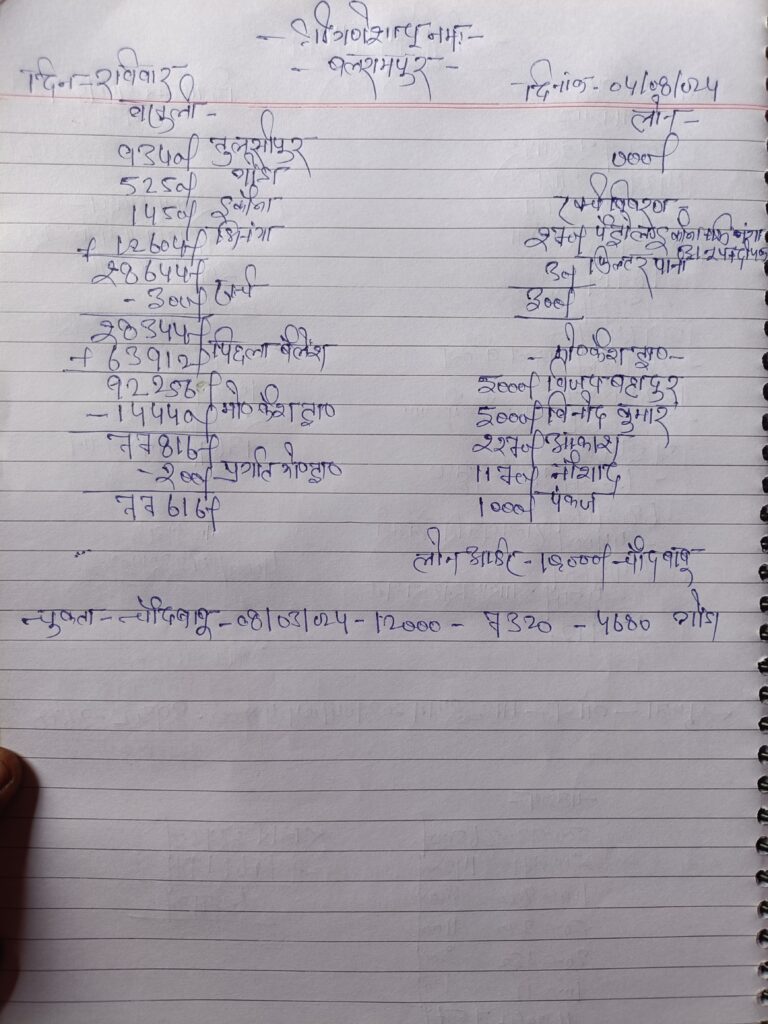 - श्री गणेशाय नमः -
- बलरामपुर -
दिन - रविवार
दिनांक - 04/08/024
वसुली -
9340/ तुलसीपुर
5250/ गोंडा
1450/ इकौना
+ 12604/ भिनगा
28644/
- 300/ खर्च
28344/
+ 63912/ पिछला बैलेंश
92256/
- 14440/ मो० कैश द्वारा
77816/
- 200/ प्रगति मो० द्वारा
77616/
लोन -
000/
खर्च विवरण -
270/ पेट्रोल इकौना भिनगा
30/ फिल्टर पानी
300/
- मो० कैश द्वारा -
5000/ विजय बहादुर
5000/ विनोद कुमार
2270/ आकाश
1170/ नौशाद
1000/ पंकज
लोन आर्डर - 12000/ - चाँदबाबू
चुकता - चाँदबाबू - 08/03/024 - 12000 - 7320 - 4680 गोंडा